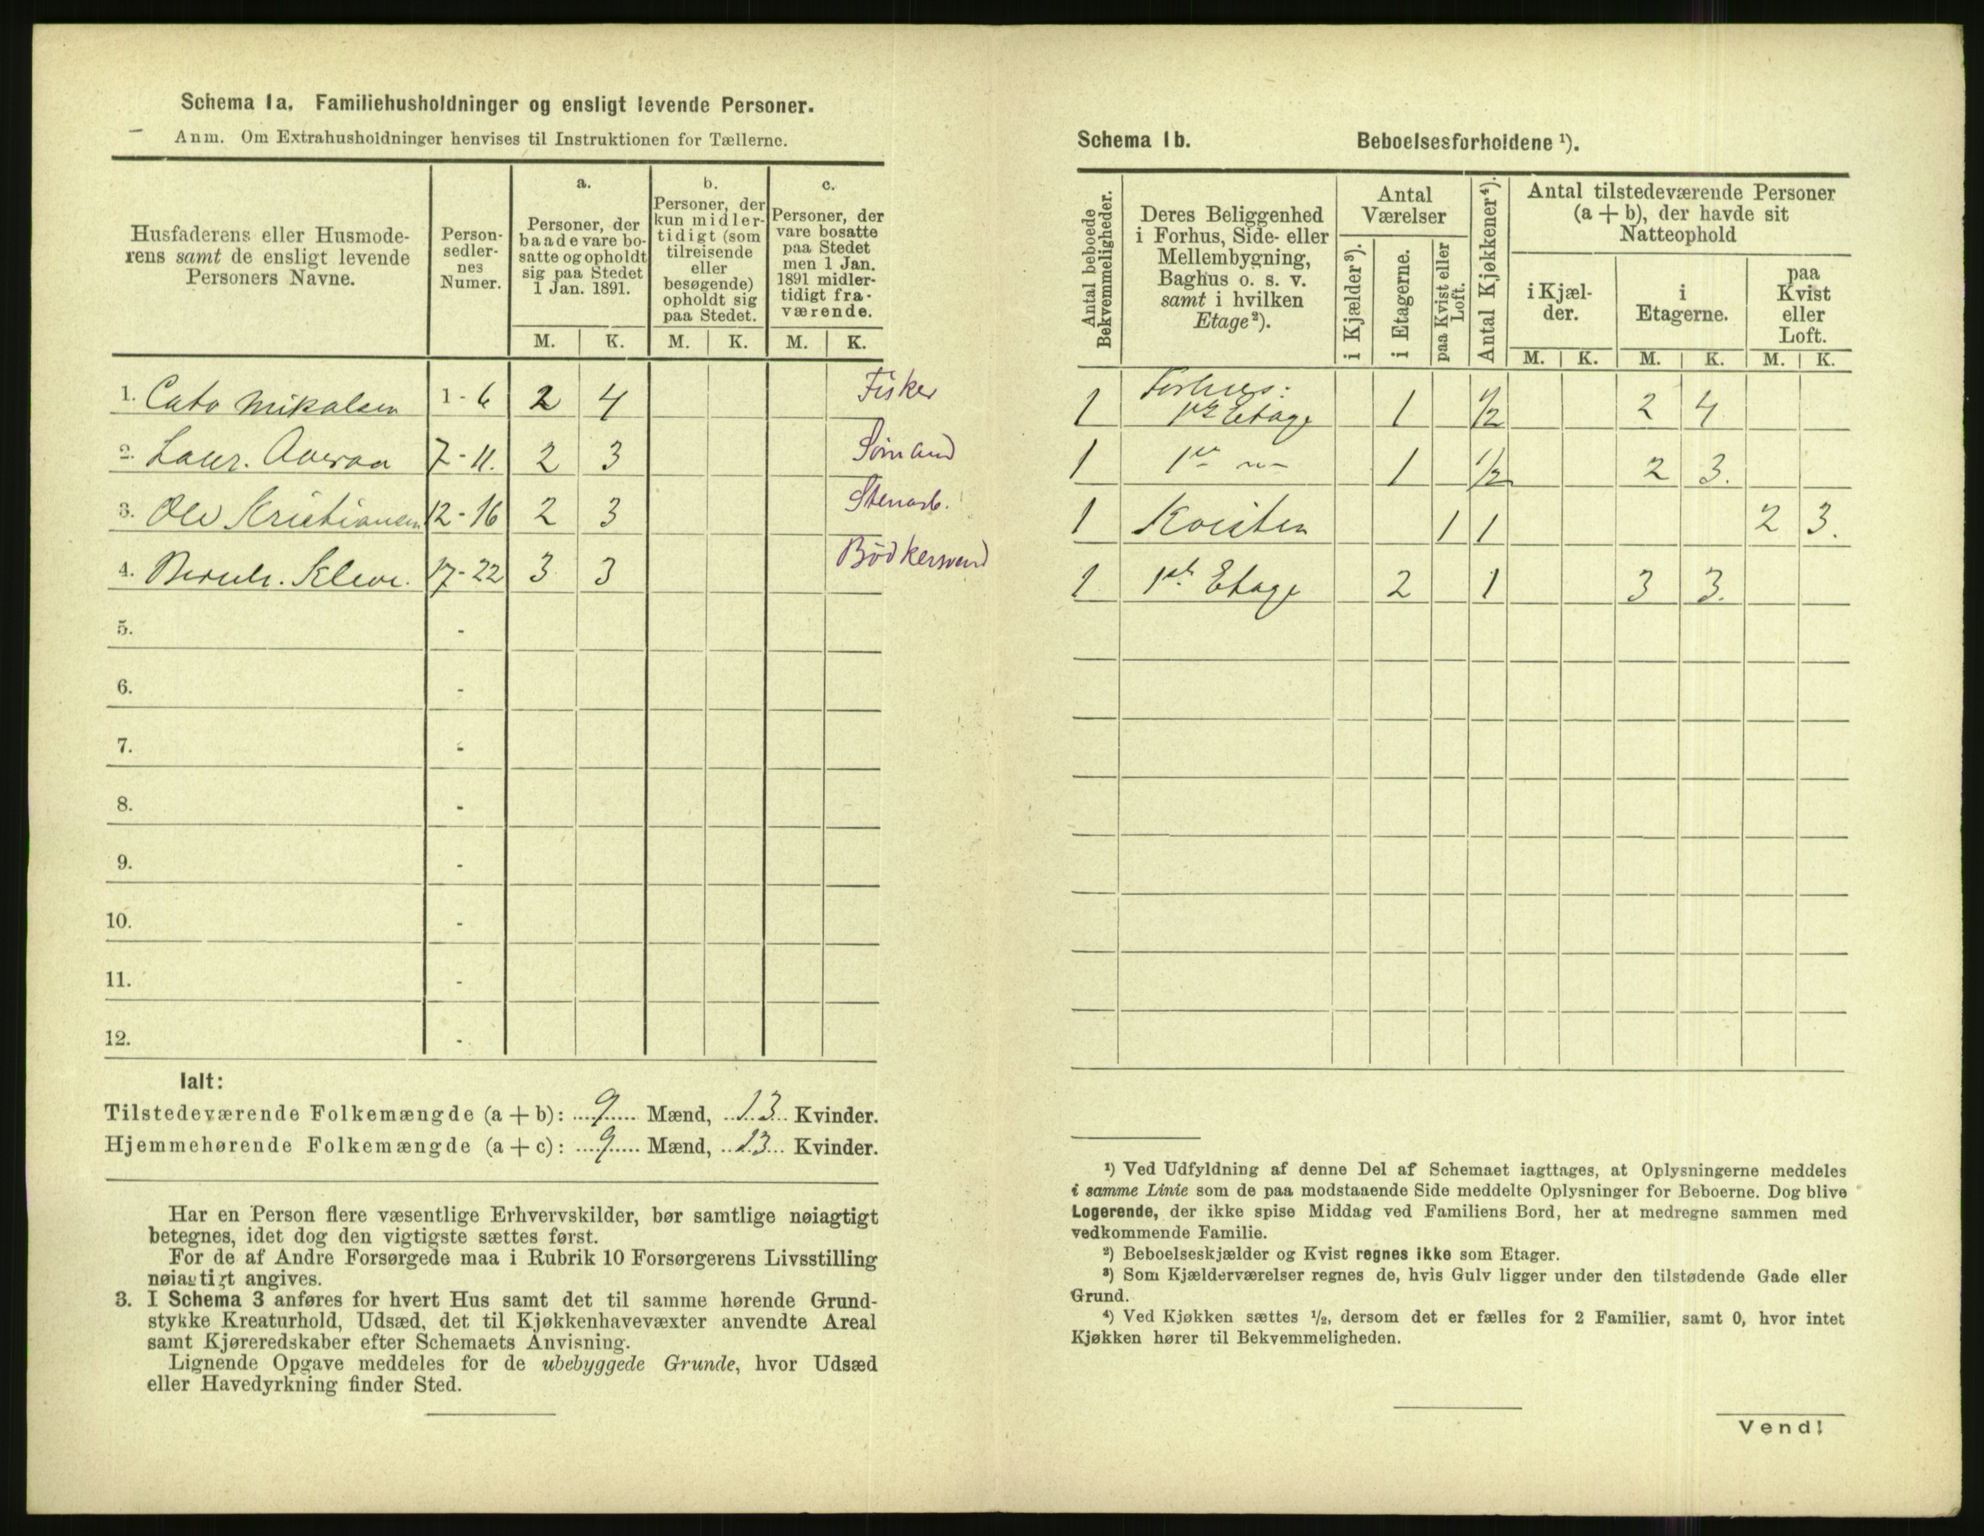 Schema 1a. Familiehusholdninger og ensligt levende Personer.
Anm. Om Extrahusholdninger henvises til Instruktionen for Tællerne.
Husfaderens eller Husmode-
rens samt de ensligt levende
Personers Navne.
Person-
sedler-
nes
Numer.
a.
Personer, der
baade vare bo-
satte og opholdt
sig paa Stedet
1 Jan. 1891.
b.
Personer, der
kun midler-
tidigt (som
tilreisende
eller
besøgende)
opholdt sig
paa Stedet.
c.
Personer, der
vare bosatte
paa Stedet
men 1 Jan.
1891 midler-
tidigt fra-
værende.
M. K. M. K. M. K.
1. Cato Mikalsen 1 - 6 2 4 Fisker
2. Laur. 7 - 11. 2 3 Sømand
3. Ole Kristiansen 12 - 16 2 3 Stenarb.
4. Bernh. Kleve. 17 - 22 3 3 Bødkersvend
5. -
6. -
7. -
8. -
9. -
10. -
11. -
12. -
Ialt:
Tilstedeværende Folkemængde (a + b): 9 Mænd, 13 Kvinder.
Hjemmehørende Folkemængde (a + c): 9 Mænd, 13 Kvinder.
Har en Person flere væsentlige Erhvervskilder, bør samtlige nøiagtigt
betegnes, idet dog den vigtigste sættes først.
For de af Andre Forsørgede maa i Rubrik 10 Forsørgerens Livsstilling
nøiagtigt angives.
3. I Schema 3 anføres for hvert Hus samt det til samme hørende Grund-
stykke Kreaturhold, Udsæd, det til Kjøkkenhavevæxter anvendte Areal
samt Kjøreredskaber efter Schemaets Anvisning.
Lignende Opgave meddeles for de ubebyggede Grunde, hvor Udsæd
eller Havedyrkning finder Sted.
Schema 1b. Beboelsesforholdene ¹).
Antal beboede
Bekvemmeligheder.
Deres Beliggenhed
i Forhus, Side- eller
Mellembygning,
Baghus o. s. v.
samt i hvilken
Etage²).
Antal
Værelser
i Kjælder³).
i Etagerne.
paa Kvist eller
Loft.
Antal Kjøkkener⁴).
Antal tilstedeværende Personer
(a + b), der havde sit
Natteophold
i Kjæl-
der.
i
Etagerne.
paa
Kvist
eller
Loft.
M. K. M. K. M. K.
1 Forhus:
1ste Etage 1 1/2 2 4
1 1ste -"- 1 1/2 2 3.
1 Kvisten 1 1 2 3.
1 1ste Etage 2 1 3 3.
¹) Ved Udfyldning af denne Del af Schemaet iagttages, at Oplysningerne meddeles
i samme Linie som de paa modstaaende Side meddelte Oplysninger for Beboerne. Dog blive
Logerende, der ikke spise Middag ved Familiens Bord, her at medregne sammen med
vedkommende Familie.
²) Beboelseskjælder og Kvist regnes ikke som Etager.
³) Som Kjælderværelser regnes de, hvis Gulv ligger under den tilstødende Gade eller
Grund.
⁴) Ved Kjøkken sættes ½, dersom det er fælles for 2 Familier, samt 0, hvor intet
Kjøkken hører til Bekvemmeligheden.
Vend!